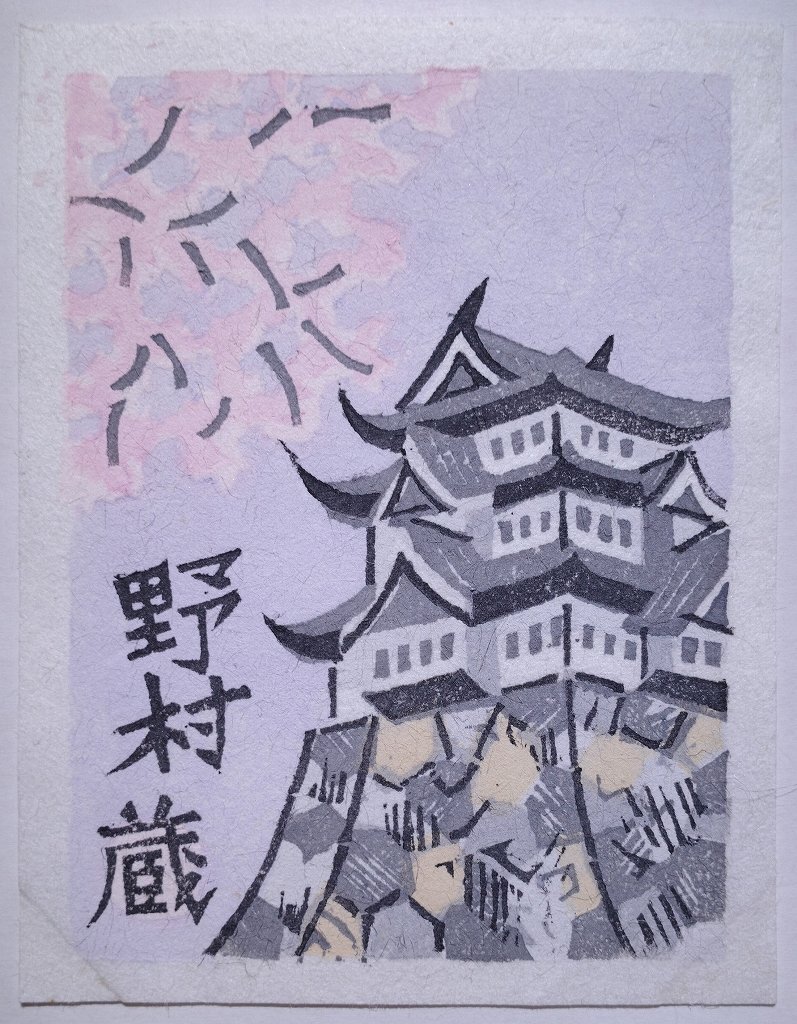 野村蔵